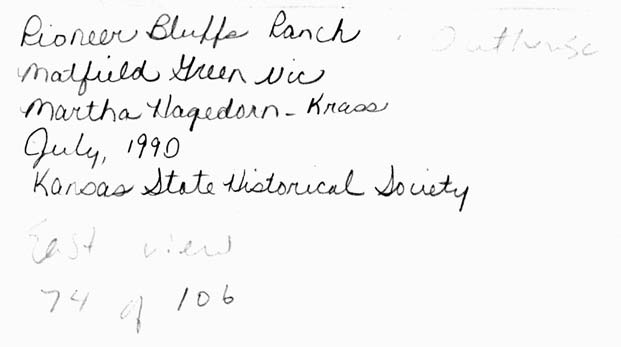 Pioneer Bluffs Ranch . Outhouse
Matfield Green Vic
Martha Hagedorn-Krass
July, 1990
Kansas State Historical Society
East view
74 of 106